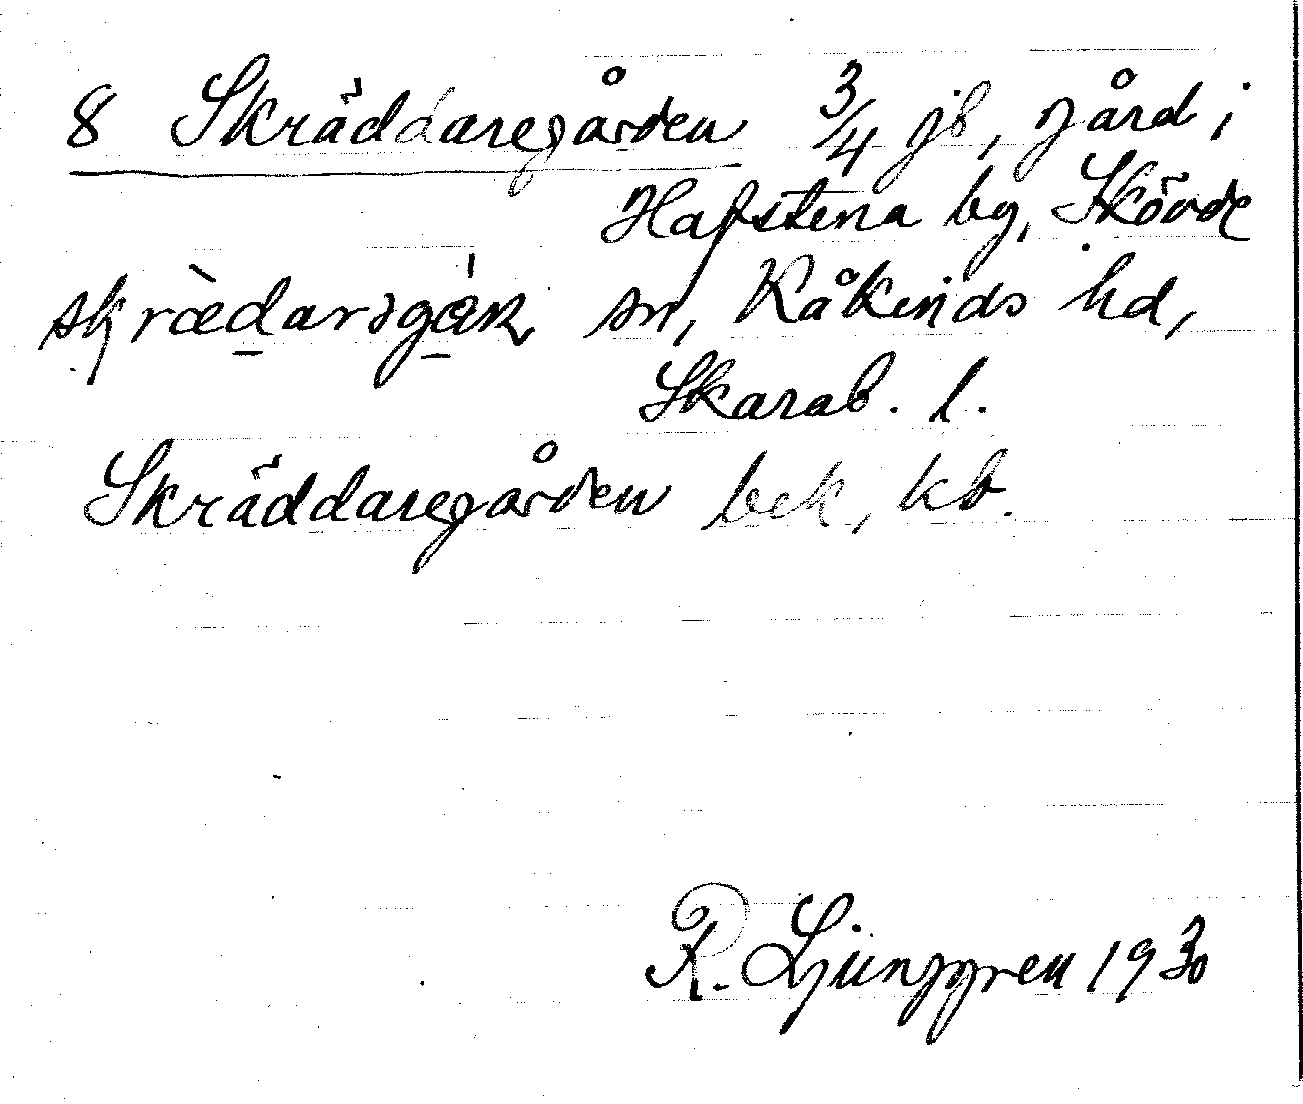 8 Skräddaregården 3/4 jb, gård i
Hafstena by, Skövde
skrædarəgáɳ sn, Kåkinds hd,
Skarab. l.
Skräddaregården bek, kb.
R. Ljunggren 1930